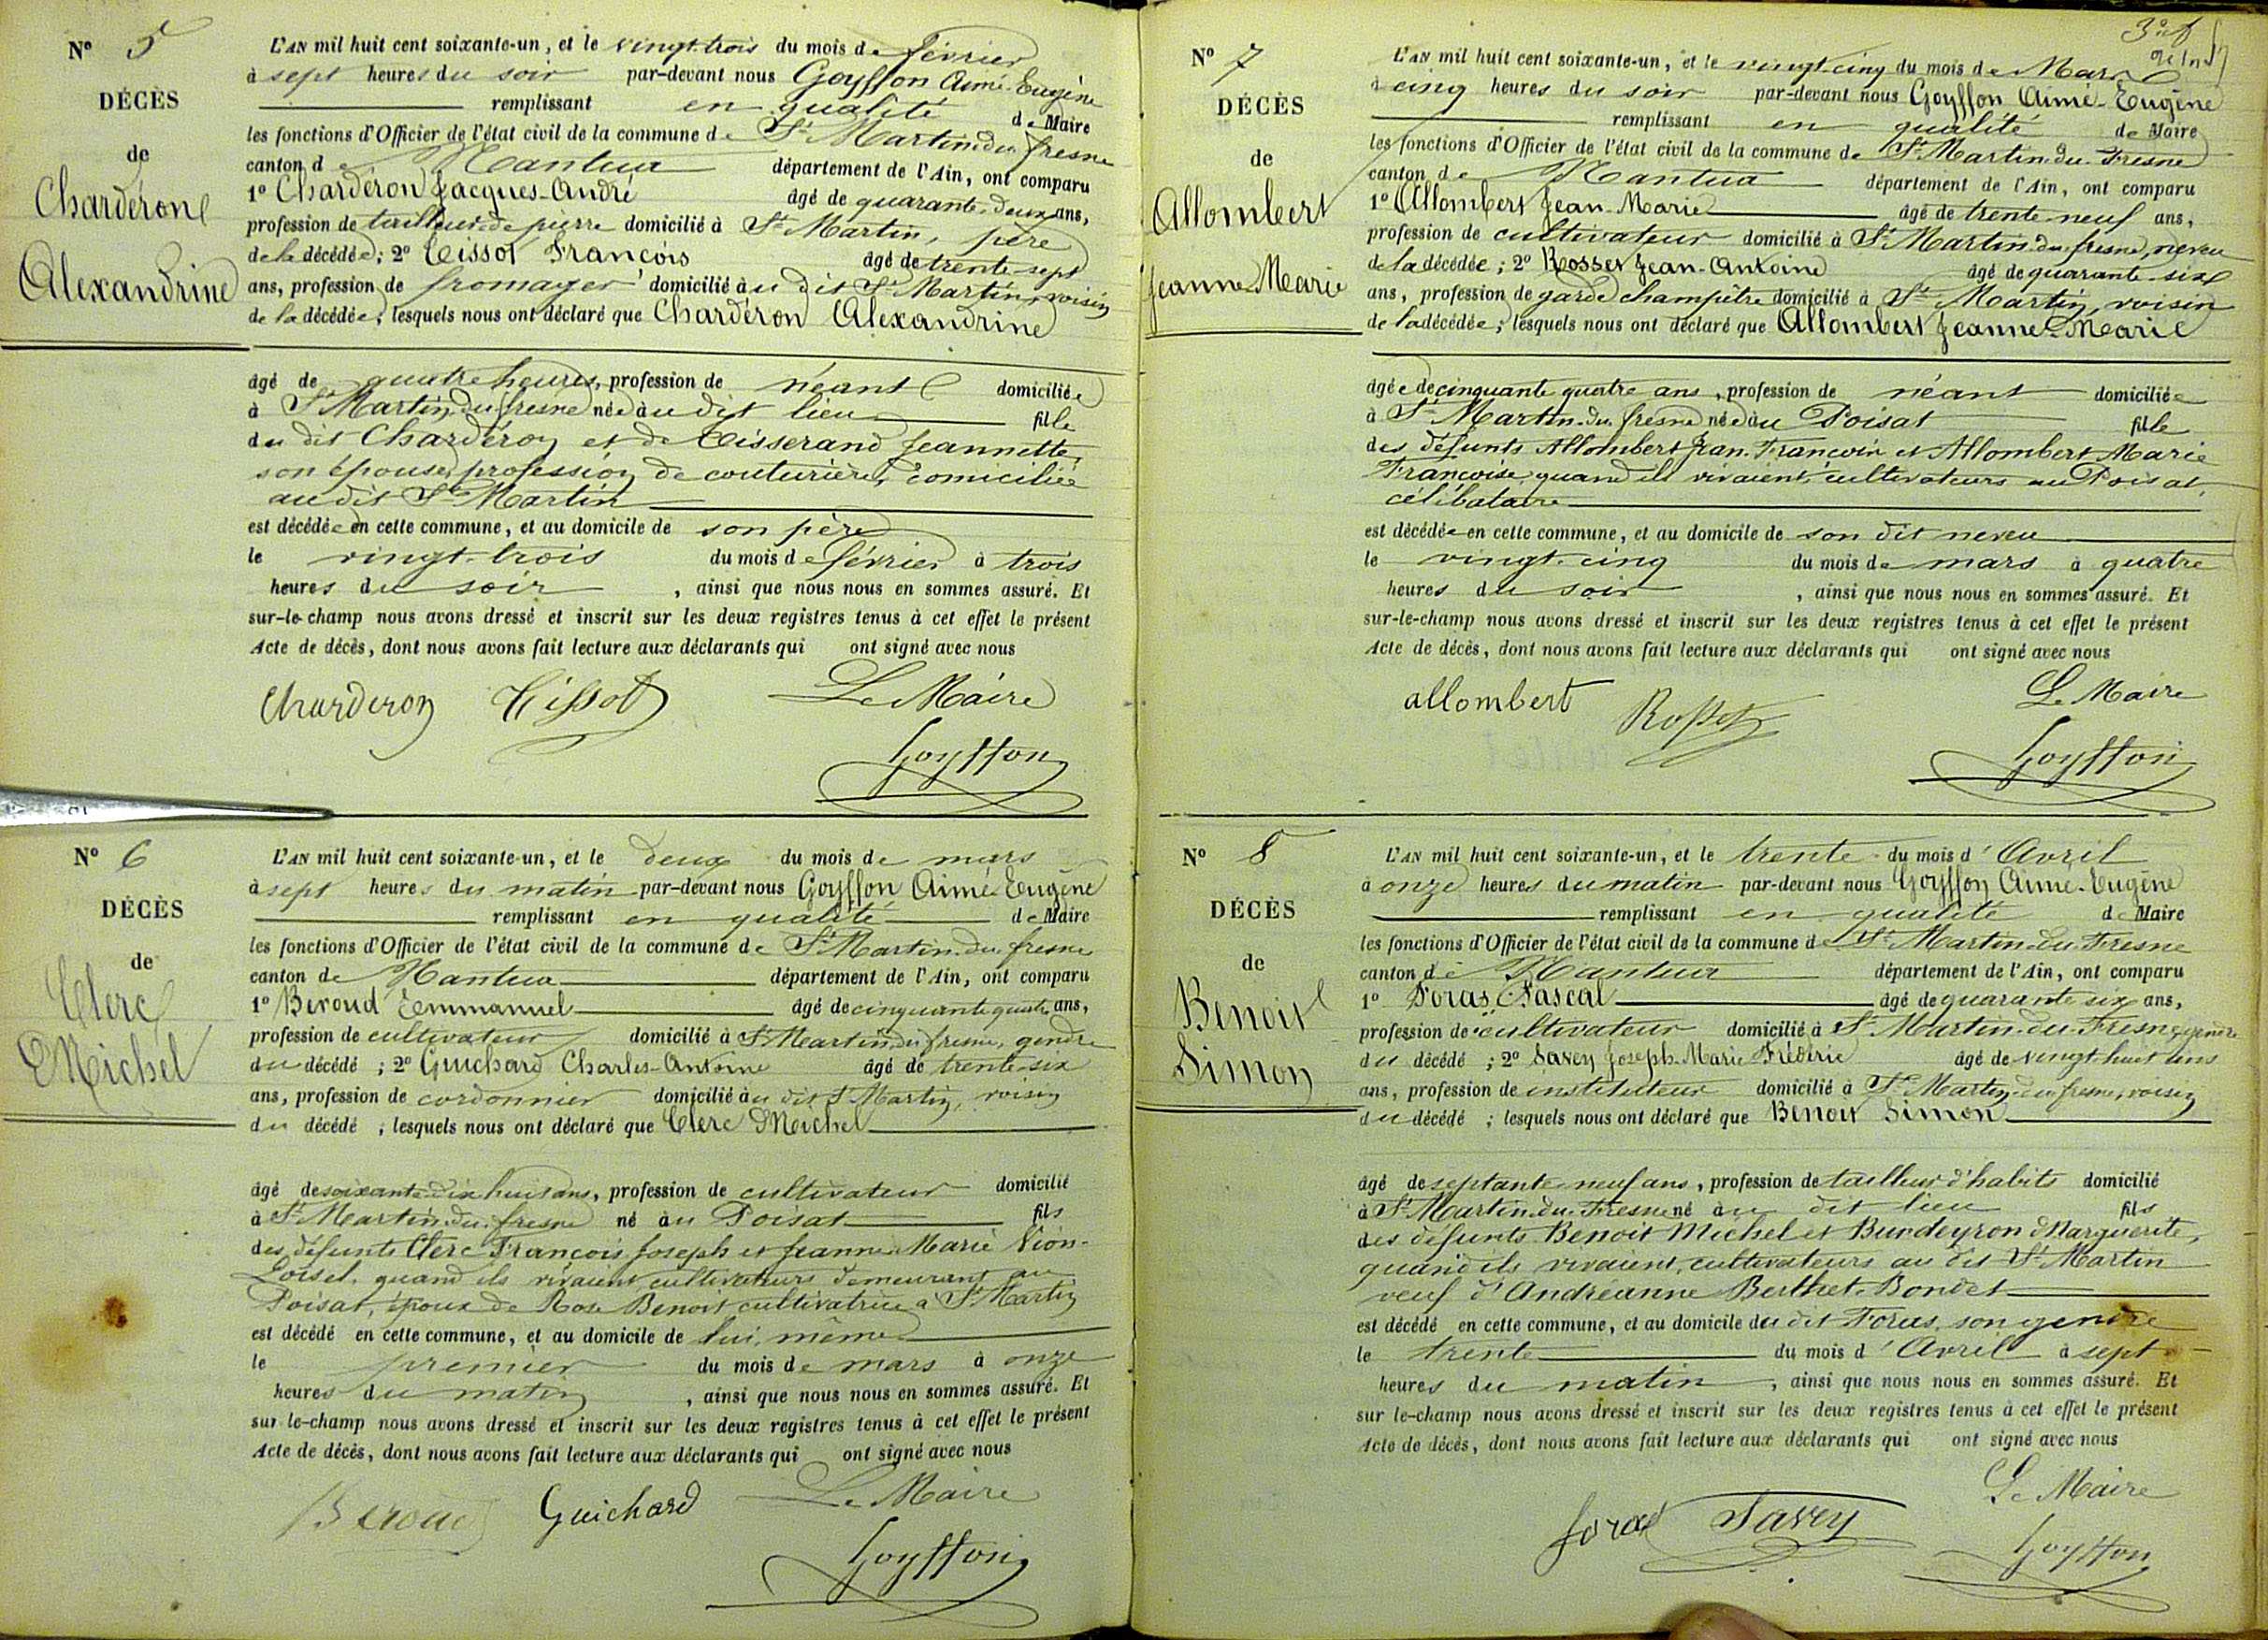 N° 5
DÉCÈS
de
Charderon
Alexandrine
L'AN mil huit cent soixante-un, et le vingt-trois du mois de février
à sept heures du soir par-devant nous Goyffon Aimé-Eugène
remplissant en qualité de Maire
les fonctions d'Officier de l'état civil de la commune de St Martin-du-fresne
canton de Nantua département de l'Ain, ont comparu
1° Charderon Jacques-André âgé de quarante-deux ans,
profession de tailleur de pierre domicilié à St Martin, père
de la décédée; 2° Tissot François âgé de trente-sept
ans, profession de fromager domicilié au dit St Martin, voisin
de la décédée; lesquels nous ont déclaré que Charderon Alexandrine
âgé de quatre heures, profession de néant domiciliée
à St Martin-du-fresne née au dit lieu fille
du dit Charderon et de Tisserand Jeannette,
son épouse, profession de couturière, domiciliée
au dit St Martin
est décédée en cette commune, et au domicile de son père
le vingt-trois du mois de février à trois
heures du soir, ainsi que nous nous en sommes assuré. Et
sur-le-champ nous avons dressé et inscrit sur les deux registres tenus à cet effet le présent
Acte de décès, dont nous avons fait lecture aux déclarants qui ont signé avec nous
Charderon Tissot Le Maire
Goyffon
N° 6
DÉCÈS
de
Clerc
Michel
L'AN mil huit cent soixante-un, et le deux du mois de mars
à sept heures du matin par-devant nous Goyffon Aimé-Eugène
remplissant en qualité de Maire
les fonctions d'Officier de l'état civil de la commune de St Martin-du-fresne
canton de Nantua département de l'Ain, ont comparu
1° Beroud Emmanuel âgé de cinquante quatre ans,
profession de cultivateur domicilié à St Martin-du-fresne, gendre
du décédé; 2° Guichard Charles-Antoine âgé de trente-six
ans, profession de cordonnier domicilié au dit St Martin, voisin
du décédé; lesquels nous ont déclaré que Clerc Michel
âgé de soixante-dix huit ans, profession de cultivateur domicilié
à St Martin-du-fresne né au Poisat fils
des défunts Clerc François Joseph et Jeanne-Marie Vion-
Loisel, quand ils vivaient cultivateurs demeurant au
Poisat, époux de Rose Benoit cultivatrice à St Martin
est décédé en cette commune, et au domicile de lui même
le premier du mois de mars à onze
heures du matin, ainsi que nous nous en sommes assuré. Et
sur le-champ nous avons dressé et inscrit sur les deux registres tenus à cet effet le présent
Acte de décès, dont nous avons fait lecture aux déclarants qui ont signé avec nous
Beroud Guichard Le Maire
Goyffon
N° 7
DÉCÈS
de
Allombert
Jeanne-Marie
L'AN mil huit cent soixante-un, et le vingt-cinq du mois de Mars
à cinq heures du soir par-devant nous Goyffon Aimé-Eugène
remplissant en qualité de Maire
les fonctions d'Officier de l'état civil de la commune de St Martin-du-Fresne
canton de Nantua département de l'Ain, ont comparu
1° Allombert Jean-Marie âgé de trente neuf ans,
profession de cultivateur domicilié à St Martin-du-fresne, neveu
de la décédée; 2° Rosset Jean-Antoine âgé de quarante-six
ans, profession de garde champêtre domicilié à St Martin, voisin
de la décédée; lesquels nous ont déclaré que Allombert Jeanne-Marie
âgée de cinquante quatre ans, profession de néant domiciliée
à St Martin-du-fresne née au Poisat fille
des défunts Allombert Jean-François et Allombert Marie
Françoise, quand ils vivaient, cultivateurs au Poisat,
célibataire
est décédée en cette commune, et au domicile de son dit neveu
le vingt-cinq du mois de mars à quatre
heures du soir, ainsi que nous nous en sommes assuré. Et
sur-le-champ nous avons dressé et inscrit sur les deux registres tenus à cet effet le présent
Acte de décès, dont nous avons fait lecture aux déclarants qui ont signé avec nous
allombert Rosset Le Maire
Goyffon
N° 8
DÉCÈS
de
Benoit
Simon
L'AN mil huit cent soixante-un, et le trente du mois d'Avril
à onze heures du matin par-devant nous Goyffon Aimé-Eugène
remplissant en qualité de Maire
les fonctions d'Officier de l'état civil de la commune de St Martin-du-Fresne
canton de Nantua département de l'Ain, ont comparu
1° Foras Pascal âgé de quarante six ans,
profession de cultivateur domicilié à St Martin-du-Fresne, gendre
du décédé; 2° Savey Joseph-Marie Frédéric âgé de vingt huit ans
ans, profession de instituteur domicilié à St Martin-du-fresne, voisin
du décédé; lesquels nous ont déclaré que Benoit Simon
âgé de septante-neuf ans, profession de tailleur d'habits domicilié
à St Martin-du-Fresne né au dit lieu fils
des défunts Benoit Michel et Burdeyron Marguerite,
quand ils vivaient, cultivateurs au dit St Martin
veuf d'Andréanne Berthet-Bondet
est décédé en cette commune, et au domicile du dit Foras, son gendre
le trente du mois d'Avril à sept
heures du matin, ainsi que nous nous en sommes assuré. Et
sur le-champ nous avons dressé et inscrit sur les deux registres tenus à cet effet le présent
Acte de décès, dont nous avons fait lecture aux déclarants qui ont signé avec nous
Le Maire
foras Savey
Goyffon